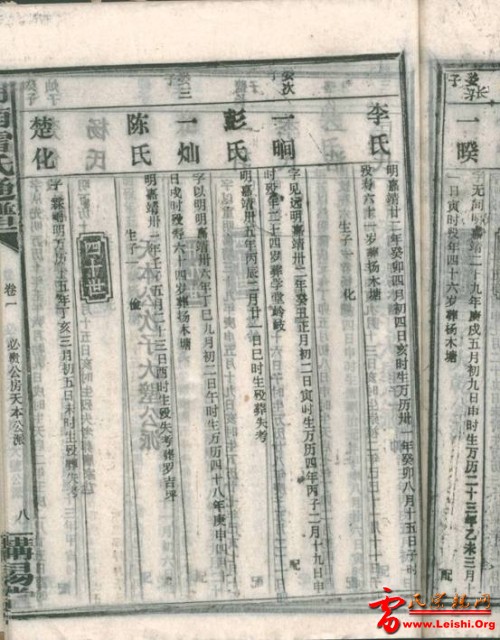 娄长子
一暌
字无间明嘉靖二十九年庚戌五月初九日申时生万历二十三年乙未三月
日寅时殁年四十六岁葬杨木塘
配
李氏
明嘉靖廿二年癸卯四月初四日亥时生万历卅一年癸卯八月十五日子时
殁寿六十一岁葬杨木塘
生子一 化
娄次子
一晌
字见远明嘉靖卅二年癸丑正月初二日寅时生万历四年丙子二月十九日申
时殁年二十四岁葬学堂岭岐
配
彭氏
明嘉靖卅五年丙辰二月廿一日巳时生殁葬失考
娄三子
一灿
字以明明嘉靖卅六年丁巳九月初二日午时生万历四十八年庚申四月
日戌时殁寿六十四岁葬杨木塘
配
陈氏
明嘉靖 年壬子二月十三日酉时生殁失考葬罗吉坪
生子一 俊
四十世
楚化
字 明万历十五年丁亥三月初五日未时生殁葬失考
雷氏通谱
卷一
必贵公房天本公派
八
雷氏宗亲网
www.Leishi.Org